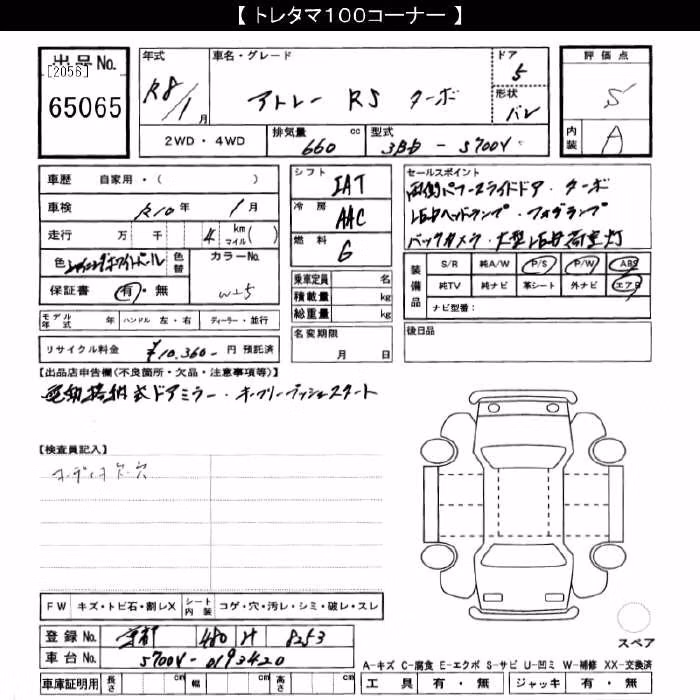 【 トレタマ100コーナー 】
出品No.
[2056]
65065
年式
R8/1月
車名・グレード
アトレー RS ターボ
ドア
5
形状
バン
評価点
S
内装
A
2WD・4WD
排気量
660 cc
型式
3BD - S700V
車歴 自家用・( )
車検 R10年 1月
走行 万 千 4 km マイル( )
色 シャイニングホワイトパール
色替
カラーNo.
W25
保証書 有・無
シフト
IAT
冷房
AAC
燃料
G
乗車定員 名
積載量 kg
総重量 kg
セールスポイント
両側パワースライドドア・ターボ
LEDヘッドランプ・フォグランプ
バックカメラ・大型LED荷室灯
装備品
S/R 純A/W P/S P/W ABS
純TV 純ナビ 革シート 外ナビ エアB
ナビ型番:
モデル年式 年 ハンドル 左・右 ディーラー・並行
リサイクル料金 ¥10.360- 円 預託済
名変期限
月 日
後日品
【出品店申告欄(不良箇所・欠品・注意事項等)】
電動格納式ドアミラー・キーフリープッシュスタート
【検査員記入】
オーディオレス 穴
FW キズ・トビ石・割レX シート内装 コゲ・穴・汚レ・シミ・破レ・スレ
登録No. 480 8253
車台No. S700V-0193420
車庫証明用 長さ cm 幅 cm 高さ cm
スペア
A-キズ C-腐食 E-エクボ S-サビ U-凹ミ W-補修 XX-交換済
工具 有・無 ジャッキ 有・無